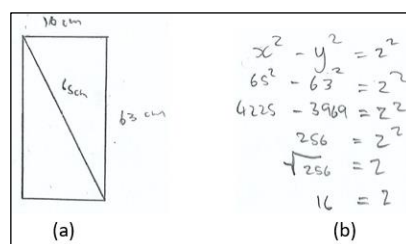 16 cm
65cm
63 cm
(a)
x² - y² = z²
65² - 63² = z²
4225 - 3969 = z²
256 = z²
√256 = z
16 = z
(b)